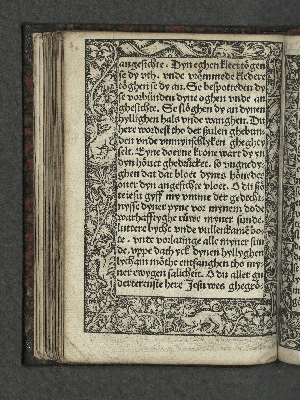 angesichte. Dyn eghen kleet tögen
se dy vth. vnde vrömmede kledere
töghen se dy an. Se bespotteden dy
se vorbünden dyne oghen vnde an
ghesichte. Se slöghen dy an dynen
hyllighen hals vnde wanghen. Du
here wordest tho der sulen ghebun
den vnde vnmynschlyken gheghey
selt. Eyne doerne krone wart dy yn
dyn hövet ghedrücket. so
dat dat bloet dynes höuedes
ouer dyn angesichte vloet. O du sö
te iesu gyff my vmme der gedecht
nysse dyner pyne vor mynem dode
warhafftyghe ruwe myner sunde.
luttere bycht vnde vullenkamē bo
te. vnde vorlatinge alle myner sun
de. vppe dath yck dynen hyllyghen
lycham möthe entfanghen tho my
ner ewygen salicheit. O du aller gu
dertirenste here Jesu wes ghegrö